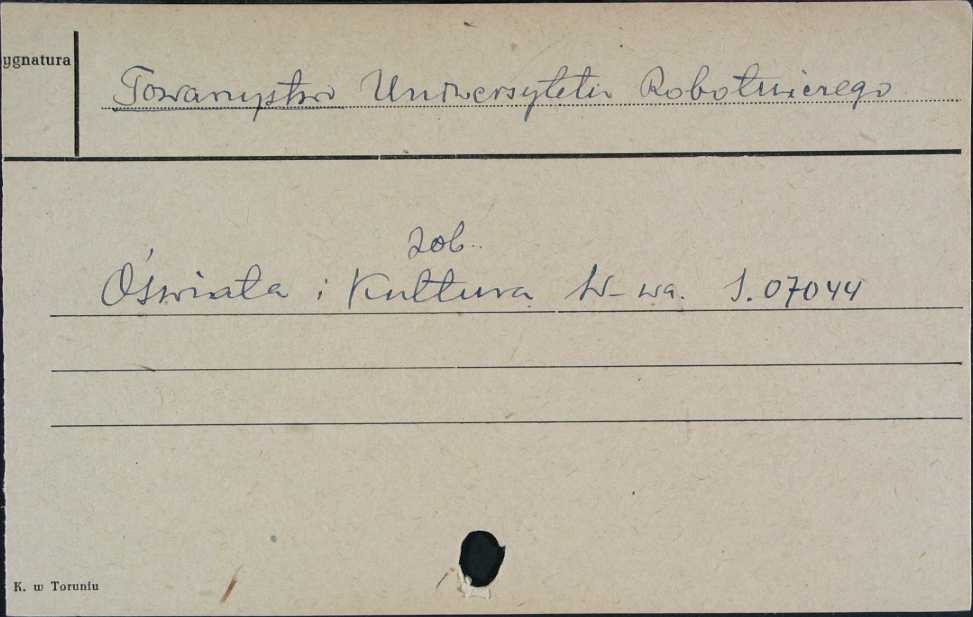 ygnatura
Towarzystwo Uniwersytetu Robotniczego
zob.
Oświata i Kultura W-wa. S.07044
K. w Toruniu